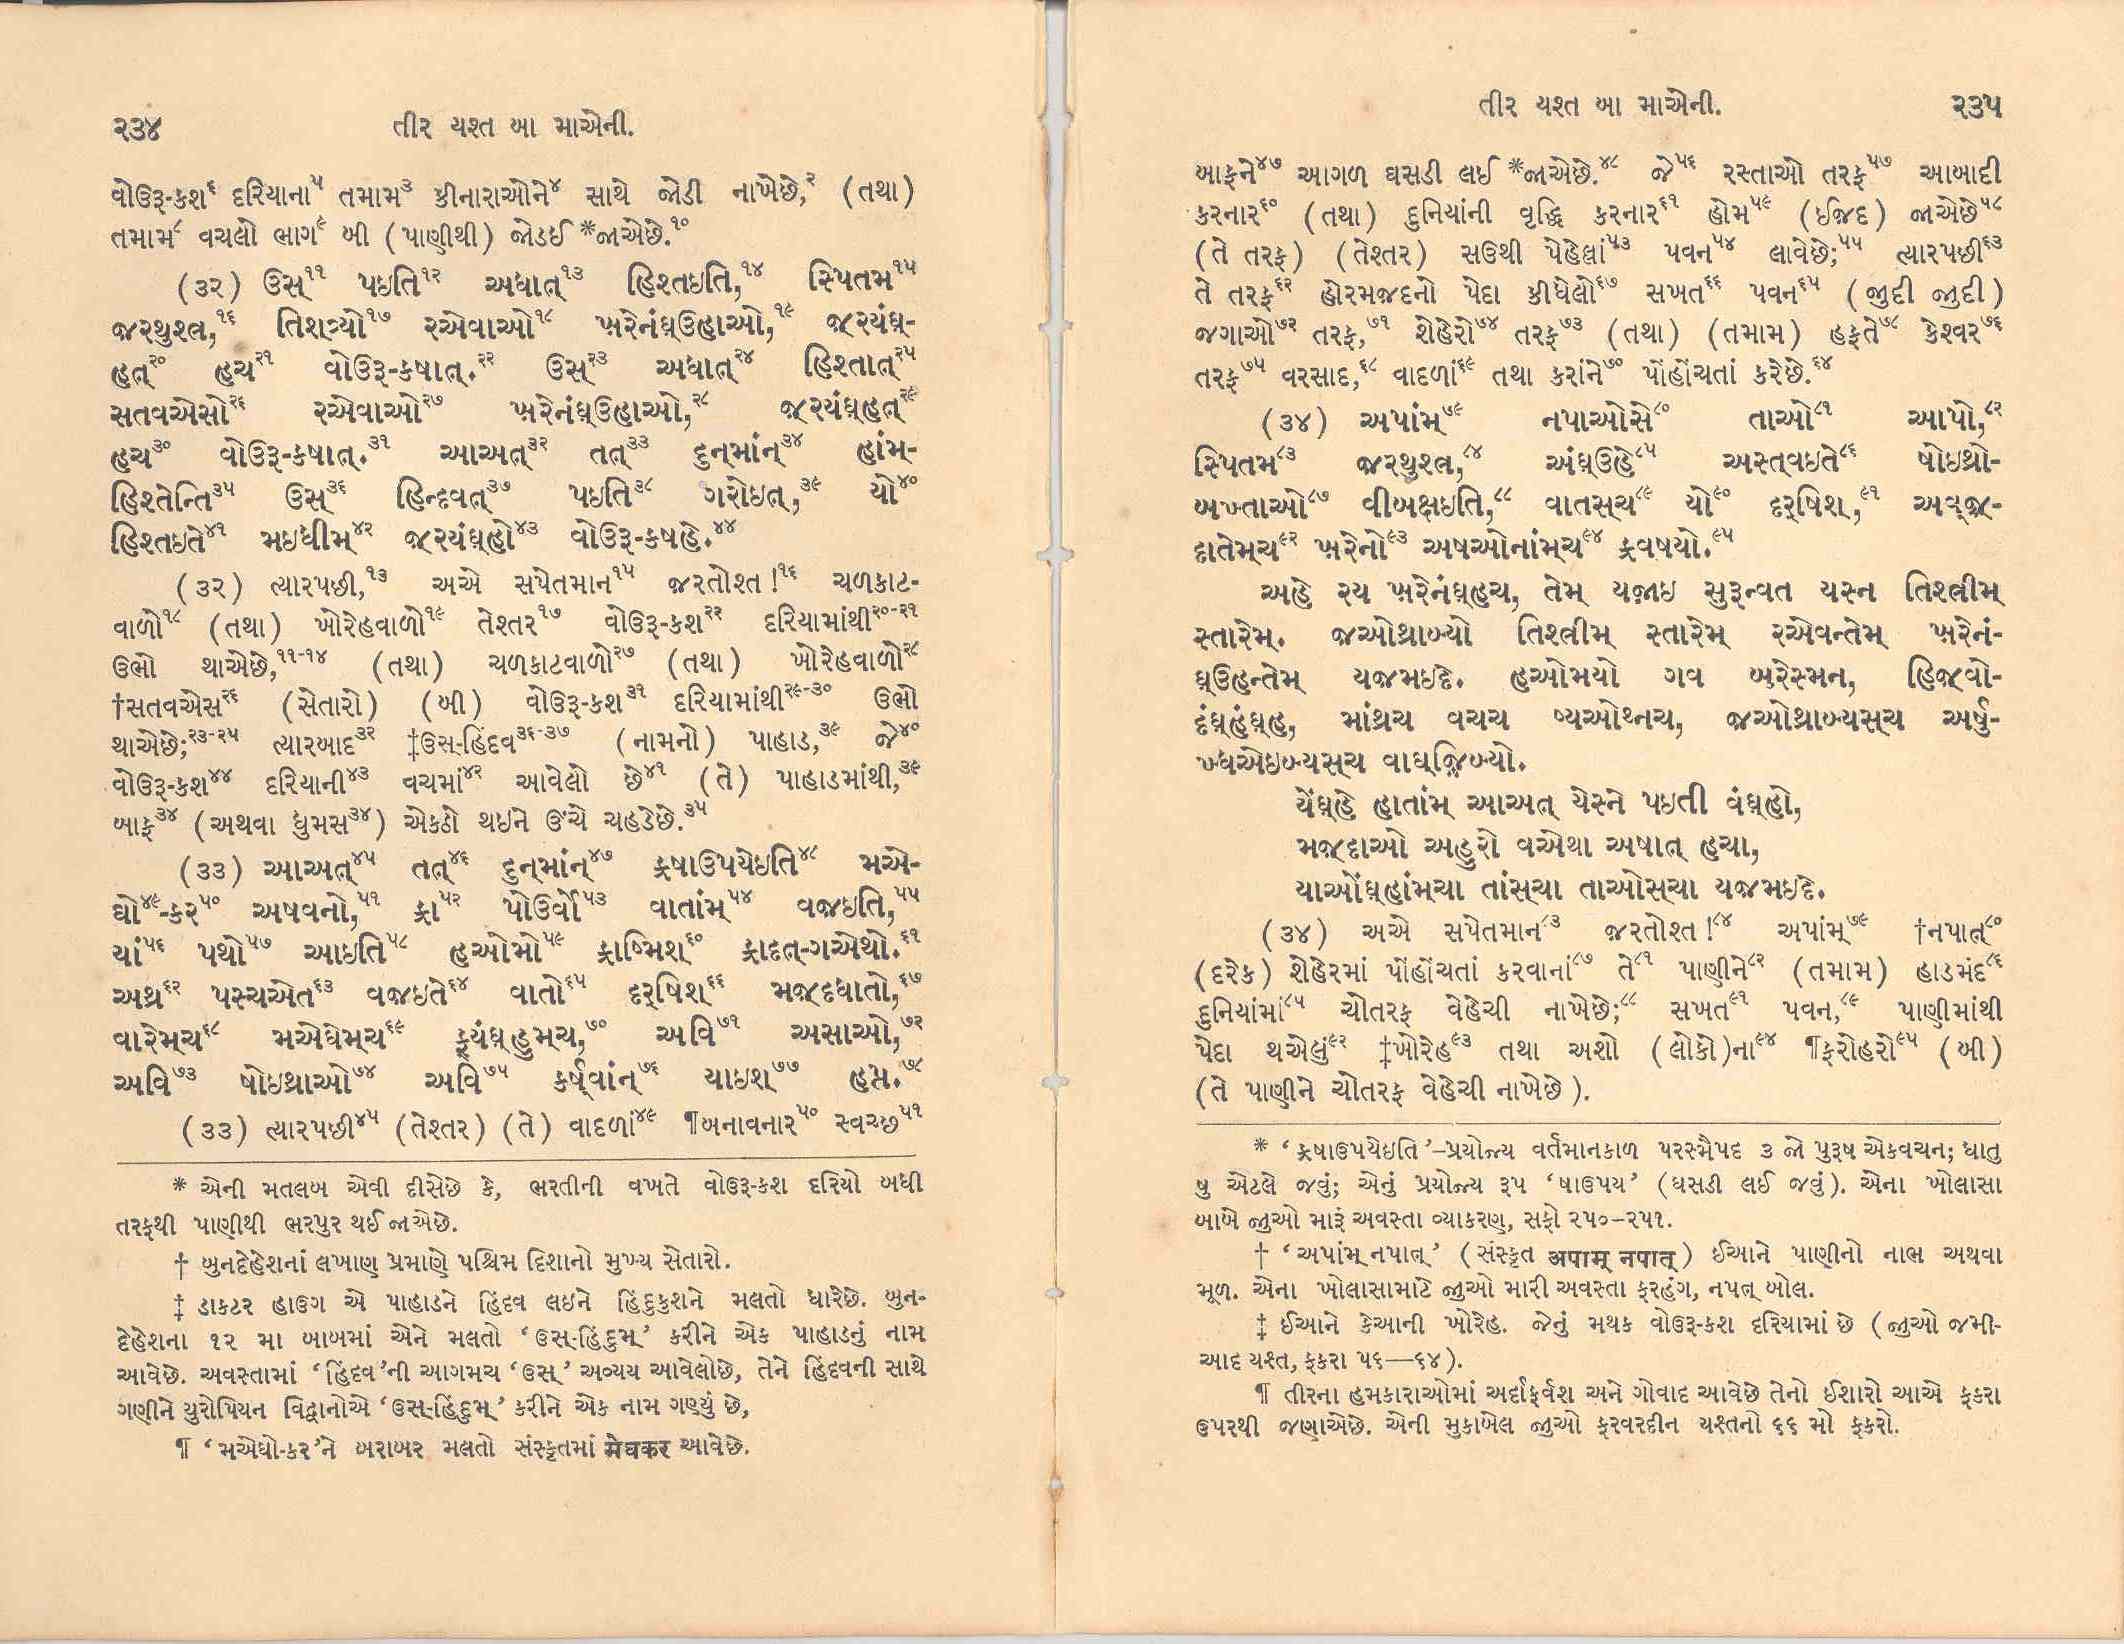 ૨૩૪ તીર યશ્ત બા માએની.
વોઉરૂ-કશ૬ દરિયાના૫ તમામ૩ કીનારાઓને૪ સાથે જોડી નાખેછે,૨ (તથા)
તમામ૮ વચલો ભાગ૯ બી (પાણીથી) જોડઈ *જાએછે.૧૦
(૩૨) ઉસ્૧૧ પઇતિ૧૨ અધાત્૧૩ હિશ્તઇતિ,૧૪ સ્પિતમ૧૫
જરથુશ્ત્ર,૧૬ તિશત્ર્યો૧૭ રએવાઓ૧૮ ખ઼રેનંઘ્ઉહાઓ,૧૯ જ઼રયંઘ્-
હત્૨૦ હચ૨૧ વોઉરૂ-કષાત્.૨૨ ઉસ્૨૩ અધાત્૨૪ હિશ્તાત્૨૫
સતવએસો૨૬ રએવાઓ૨૭ ખ઼રેનંઘ્ઉહાઓ,૨૮ જ઼રયંઘ્હત્૨૯
હચ૩૦ વોઉરૂ-કષાત્.૩૧ આઅત્૩૨ તત્૩૩ દુન્માંન્૩૪ હાંમ્-
હિશ્તેન્તિ૩૫ ઉસ્૩૬ હિન્દવત્૩૭ પઇતિ૩૮ ગરોઇત્,૩૯ યો૪૦
હિશ્તઇતે૪૧ મઇધીમ્૪૨ જ઼રયંઘ્હો૪૩ વોઉરૂ-કષહે.૪૪
(૩૨) ત્યારપછી,૧૩ અએ સપેતમાન૧૫ જરતોશ્ત!૧૬ ચળકાટ-
વાળો૧૮ (તથા) ખોરેહવાળો૧૯ તેશ્તર૧૭ વોઉરૂ-કશ૨૨ દરિયામાંથી૨૦-૨૧
ઉભો થાએછે,૧૧-૧૪ (તથા) ચળકાટવાળો૨૭ (તથા) ખોરેહવાળો૨૮
†સતવએસ૨૬ (સેતારો) (બી) વોઉરૂ-કશ૩૧ દરિયામાંથી૨૯-૩૦ ઉભો
થાએછે;૨૩-૨૫ ત્યારબાદ૩૨ ‡ઉસ્-હિંદવ૩૬-૩૭ (નામનો) પાહાડ,૩૯ જે૪૦
વોઉરૂ-કશ૪૪ દરિયાની૪૩ વચમાં૪૨ આવેલો છે૪૧ (તે) પાહાડમાંથી,૩૯
બાફ૩૪ (અથવા ધુમસ૩૪) એકઠો થઇને ઉંચે ચહડેછે.૩૫
(૩૩) આઅત્૪૫ તત્૪૬ દુન્માંન્૪૭ ફ્રષાઉપયેઇતિ૪૮ મએ-
ઘો૪૯-કર૫૦ અષવનો,૫૧ ફ્રા૫૨ પોઉર્વો૫૩ વાતાંમ્૫૪ વજ઼ઇતિ,૫૫
યાં૫૬ પથો૫૭ આઇતિ૫૮ હઓમો૫૯ ફ્રાષ્મિશ૬૦ ફ્રાદત્-ગએથો.૬૧
અથ્ર૬૨ પસ્ચએત૬૩ વજ઼ઇતે૬૪ વાતો૬૫ દર્ષિશ્૬૬ મજ઼્દધાતો,૬૭
વારેમ્ચ૬૮ મએઘેમ્ચ૬૯ ફ્યંઘ્હુમ્ચ,૭૦ અવિ૭૧ અસાઓ,૭૨
અવિ૭૩ ષોઇથ્રાઓ૭૪ અવિ૭૫ કર્ષ્વાંન્૭૬ યાઇશ૭૭ હપ્ત.૭૮
(૩૩) ત્યારપછી૪૫ (તેશ્તર) (તે) વાદળાં૪૯ ¶બનાવનાર૫૦ સ્વચ્છ૫૧
* એની મતલબ એવી દીસેછે કે, ભરતીની વખતે વોઉરૂ-કશ દરિયો બધી
તરફથી પાણીથી ભરપુર થઈ જાએછે.
† બુનદેહેશનાં લખાણ પ્રમાણે પશ્ચિમ દિશાનો મુખ્ય સેતારો.
‡ ડાકટર હાઉગ એ પાહાડને હિંદવ લઇને હિંદુકુશને મલતો ધારેછે. બુન-
દેહેશના ૧૨ મા બાબમાં એને મલતો ‘ઉસ્-હિંદુમ્’ કરીને એક પાહાડનું નામ
આવેછે. અવસ્તામાં ‘હિંદવ’ની આગમચ ‘ઉસ્’ અવ્યય આવેલોછે, તેને હિંદવની સાથે
ગણીને યુરોપિયન વિદ્વાનોએ ‘ઉસ્-હિંદુમ્’ કરીને એક નામ ગણ્યું છે,
¶ ‘મએઘો-કર’ને બરાબર મલતો સંસ્કૃતમાં मेघकर આવેછે.
તીર યશ્ત બા માએની. ૨૩૫
બાફને૪૭ આગળ ઘસડી લઈ *જાએછે.૪૮ જે૫૬ રસ્તાઓ તરફ૫૭ આબાદી
કરનાર૬૦ (તથા) દુનિયાંની વૃદ્ધિ કરનાર૬૧ હોમ૫૯ (ઈજ઼દ) જાએછે૫૮
(તે તરફ) (તેશ્તર) સઉથી પેહેલાં૫૩ પવન૫૪ લાવેછે;૫૫ ત્યારપછી૬૩
તે તરફ૬૨ હોરમજ઼દનો પેદા કીધેલો૬૭ સખત૬૬ પવન૬૫ (જુદી જુદી)
જગાઓ૭૨ તરફ,૭૧ શેહેરો૭૪ તરફ૭૩ (તથા) (તમામ) હફતે૭૮ કેશ્વર૭૬
તરફ૭૫ વરસાદ,૬૮ વાદળાં૬૯ તથા કરાંને૭૦ પોંહોંચતાં કરેછે.૬૪
(૩૪) અપાંમ્૭૯ નપાઓસે૮૦ તાઓ૮૧ આપો,૮૨
સ્પિતમ૮૩ જ઼રથુશ્ત્ર,૮૪ અંઘ્ઉહે૮૫ અસ્ત્વઇતે૮૬ ષોઇથ્રો-
બખ્તાઓ૮૭ વીબક્ષઇતિ,૮૮ વાતસ્ચ૮૯ યો૯૦ દર્ષિશ,૯૧ અવ્જ઼-
દાતેમ્ચ૯૨ ખ઼રેનો૯૩ અષઓનાંમ્ચ૯૪ ફ્રવષયો.૯૫
અહે રય ખ઼રેનંઘ્હચ, તેમ્ યજ઼ાઇ સુરૂન્વત યસ્ન તિશ્ત્રીમ્
સ્તારેમ્. જ઼ઓથ્રાબ્યો તિશ્ત્રીમ્ સ્તારેમ્ રએવન્તેમ્ ખ઼રેનં-
ઘ્ઉહન્તેમ્ યજ઼મઇદે. હઓમયો ગવ બરેસ્મન, હિજ઼્વો-
દંઘ્હંઘ્હ, માંથ્રચ વચચ ષ્યઓથ્નચ, જ઼ઓથ્રાબ્યસ્ચ અર્ષુ-
ખ્ધએઇબ્યસ્ચ વાઘ્જ઼િબ્યો.
યેંઘ્હે હાતાંમ્ આઅત્ યેસ્ને પઇતી વંઘ્હો,
મજ઼્દાઓ અહુરો વએથા અષાત્ હચા,
યાઓંઘ્હાંમ્ચા તાંસ્ચા તાઓસ્ચા યજ઼મઇદે.
(૩૪) અએ સપેતમાન૮૩ જરતોશ્ત!૮૪ અપાંમ્૭૯ †નપાત્૮૦
(દરેક) શેહેરમાં પોંહોંચતાં કરવાનાં૮૭ તે૮૧ પાણીને૮૨ (તમામ) હાડમંદ૮૬
દુનિયાંમાં૮૫ ચોતરફ વેહેચી નાખેછે;૮૮ સખત૯૧ પવન,૮૯ પાણીમાંથી
પેદા થએલું૯૨ ‡ખોરેહ૯૩ તથા અશો (લોકો)ના૯૪ ¶ફરોહરો૯૫ (બી)
(તે પાણીને ચોતરફ વેહેચી નાખેછે).
* ‘ફ્રષાઉપયેઇતિ’-પ્રયોજ્ય વર્તમાનકાળ પરસ્મૈપદ ૩ જો પુરૂષ એકવચન; ધાતુ
ષુ એટલે જવું; એનું પ્રયોજ્ય રૂપ ‘ષાઉપય’ (ઘસડી લઈ જવું). એના ખોલાસા
બાબે જુઓ મારૂં અવસ્તા વ્યાકરણ, સફો ૨૫૦-૨૫૧.
† ‘અપાંમ્ નપાત્’ (સંસ્કૃત अपाम् नपात्) ઈઆને પાણીનો નાભ અથવા
મૂળ. એના ખોલાસામાટે જુઓ મારી અવસ્તા ફરહંગ, નપત્ બોલ.
‡ ઈઆને કેઆની ખોરેહ. જેનું મથક વોઉરૂ-કશ દરિયામાં છે (જુઓ જમી-
આદ યશ્ત, ફકરા ૫૬—૬૪).
¶ તીરના હમકારાઓમાં અર્દાફર્વશ અને ગોવાદ આવેછે તેનો ઈશારો આએ ફકરા
ઉપરથી જણાએછે. એની મુકાબેલ જુઓ ફરવરદીન યશ્તનો ૬૬ મો ફકરો.